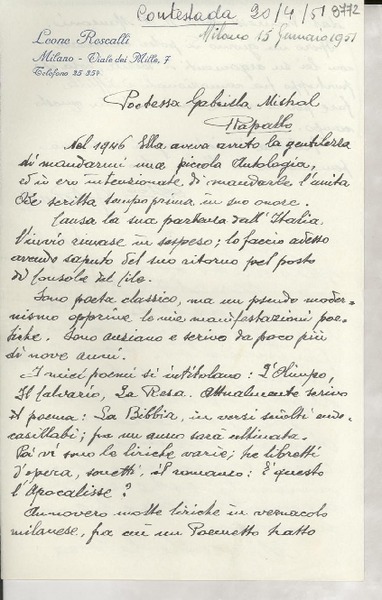 Contestada 20/4/51 8772
Leone Roscalli
Milano - Viale dei Mille, 7
Telefono 25 354
Milano 15 Gennaio 1951
Poetessa Gabriella Mistral
Rapallo
Nel 1946 Ella aveva avuto la gentilezza
di mandarmi una piccola Antologia,
ed io ero intenzionato, di mandarle l'unita
scritta tempo prima in suo onore.
Causa la sua partenza dall'Italia
l'invio rimase in sospeso; lo faccio adesso
avendo saputo del suo ritorno pel posto
di Console del Cile.
Sono poeta classico, ma un pseudo moder-
nismo opprime le mie manifestazioni poe-
tiche. Sono anziano e scrivo da poco più
di nove anni.
I miei poemi si intitolano: L'Olimpo,
Il Calvario, La Resa. Attualmente scrivo
il poema: La Bibbia, in versi sciolti ende-
casillabi; fra un anno sarà ultimata.
Poi vi sono le liriche varie; tre libretti
d'opera, sonetti, il romanzo: È questo
l'Apocalisse?
Annovero molte liriche in vernacolo
milanese, fra cui un Poemetto tratto